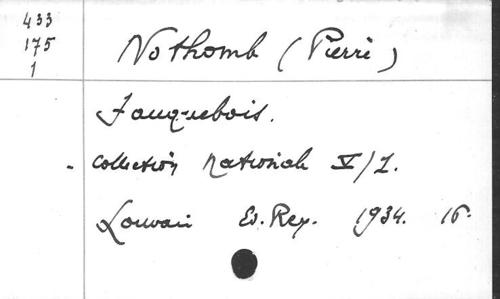 433
175
1
Nothomb (Pierre)
Fauquebois.
- Collection Nationale V/1.
Louvain Ed. Rex. 1934. 16°